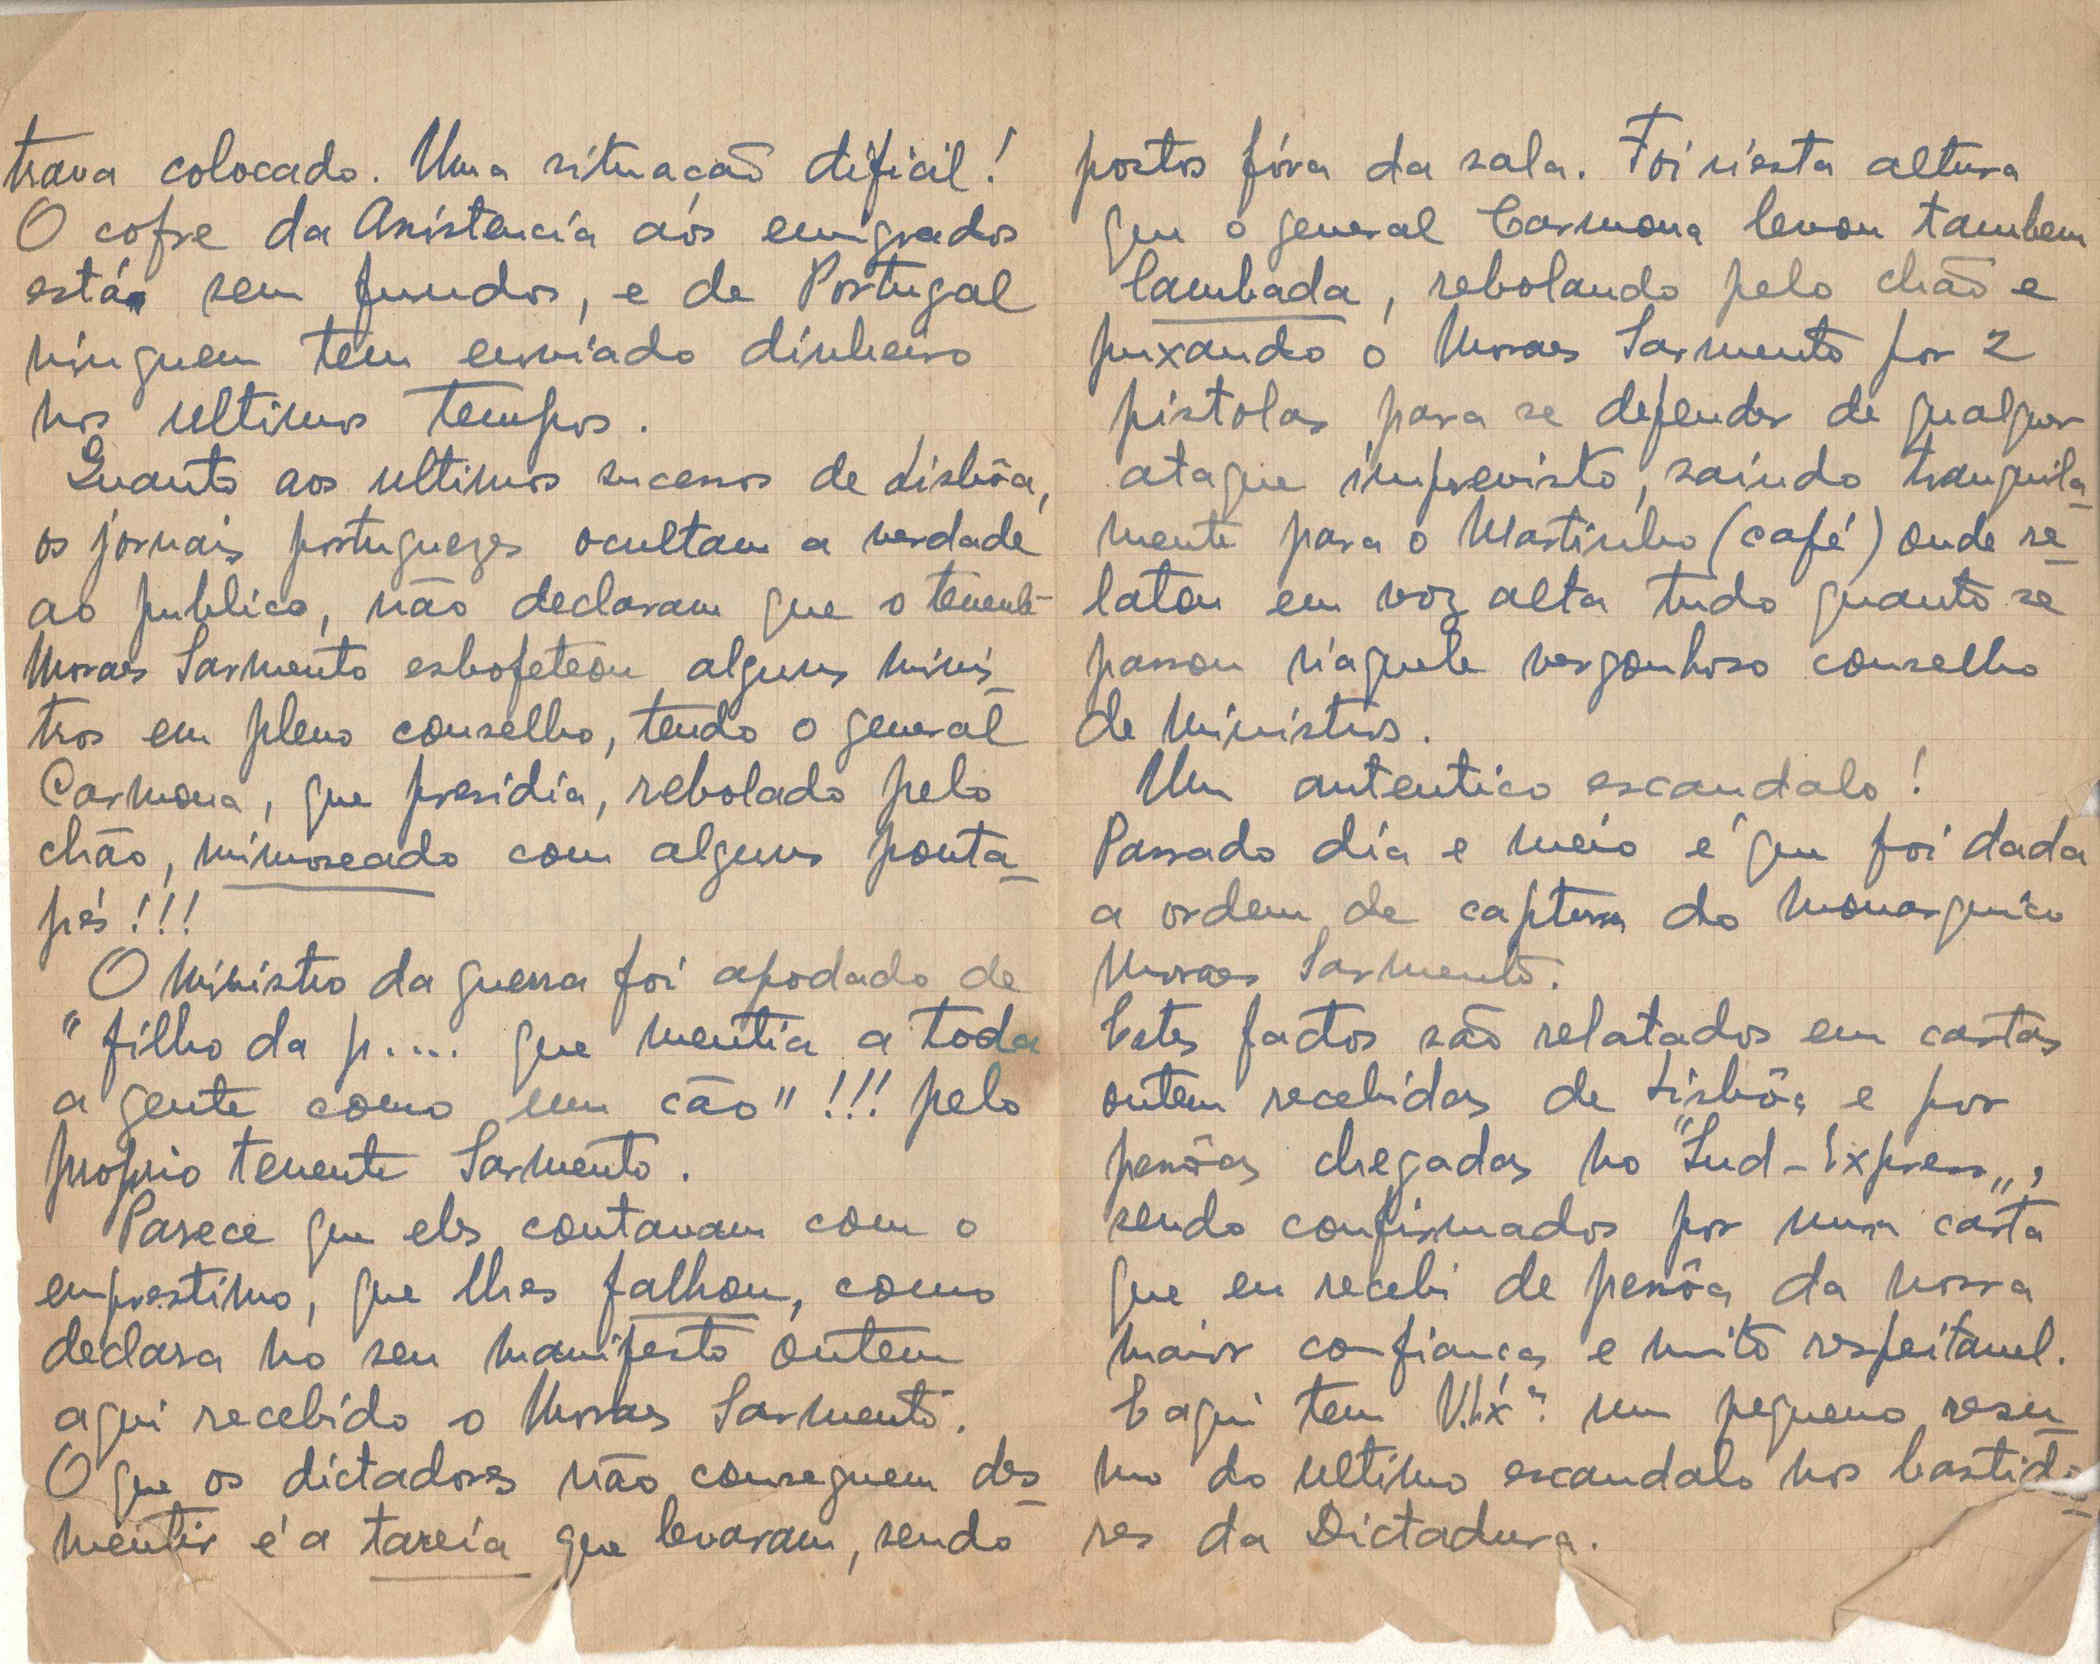 trava colocado. Uma situação dificil!
O cofre da Assistencia aós emigrados
está sem fundos, e de Portugal
ninguem tem enviado dinheiro
nos ultimos tempos.
Quanto aos ultimos sucessos de Lisbôa,
os jornais portuguezes ocultam a verdade
ao publico, não declaram que o tenente
Moraes Sarmento esbofeteou alguns minis-
tros em pleno conselho, tendo o general
Carmona, que presidia, rebolado pelo
chão, mimoseado com alguns ponta-
pés!!!
O Ministro da guerra foi apodado de
"filho da p.... que mentia a toda
a gente como um cão"!!! pelo
proprio tenente Sarmento.
Parece que eles contavam com o
emprestimo, que lhes falhou, como
declara no seu manifesto ontem
aqui recebido o Moraes Sarmento.
O que os dictadores não conseguem des-
mentir é a tareia que levaram, sendo
postos fóra da sala. Foi n'esta altura
que o general Carmona levou tambem
lambada, rebolando pelo chão e
puxando o Moraes Sarmento por 2
pistolas para se defender de qualquer
ataque imprevisto, saindo tranquila-
mente para o Martinho (café) onde re-
latou em voz alta tudo quanto se
passou n'aquele vergonhoso conselho
de Ministros.
Um autentico escandalo!
Passado dia e meio é que foi dada
a ordem de captura do monarquico
Moraes Sarmento.
Estes factos são relatados em cartas
ontem recebidas de Lisbôa e por
pessôas chegadas no "Sud-Express",
sendo confirmados por uma carta
que eu recebi de pessôa da nossa
maior confiança e muito respeitavel.
E aqui tem V. Exª. um pequeno resu-
mo do ultimo escandalo nos bastido-
res da Dictadura.